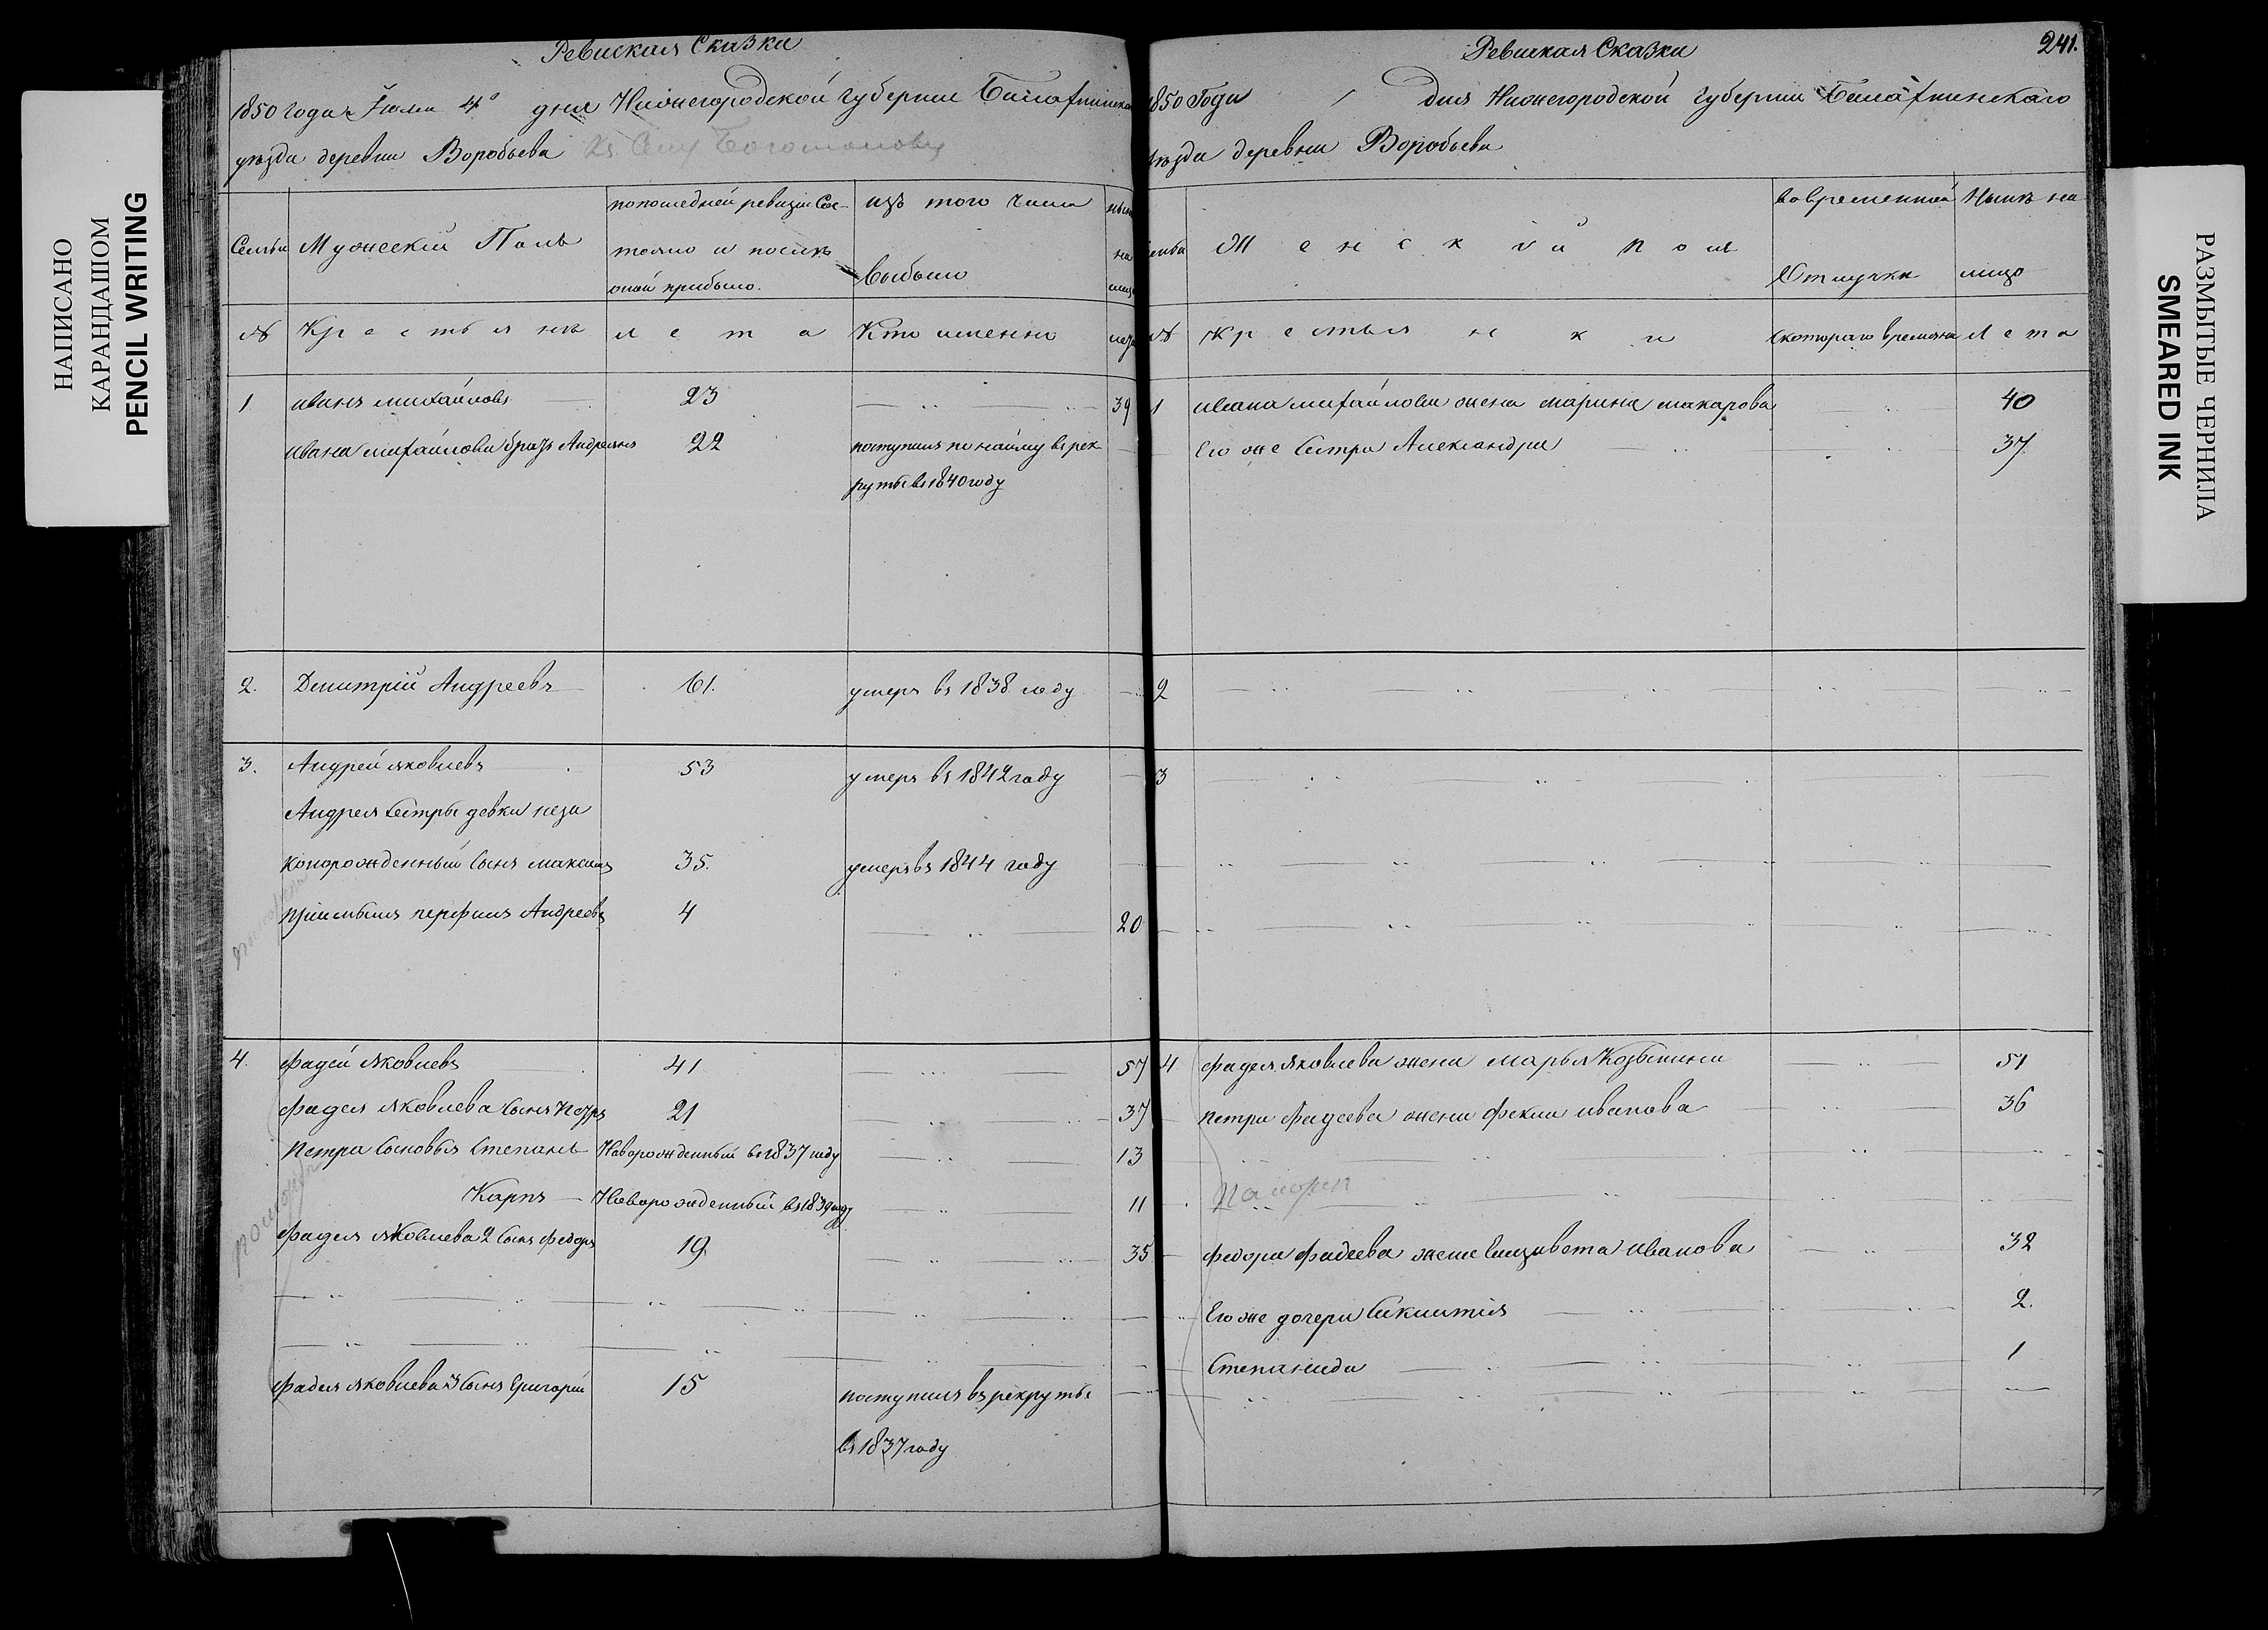 НАПИСАНО
КАРАНДАШОМ
PENCIL WRITING
Ревиская Сказка
1850 года Июля 4º дня Нижегородской губернии Балахнинска
уезда деревни Воробьева
Семьи
Мужеский Полъ
по последней ревизии Сос-
тояло и после
оной прибыло.
изъ того числа
выбыло
ныне
на
лицо
№
Крестьяне
лета
Кто именно
лета
1 иванъ михайловъ 23 39
ивана михайлова братъ Андреянъ 22 поступилъ по найму въ рек
руты въ 1840 году
2. Дмитрий Андреевъ 61. умеръ въ 1838 году
3. Андрей яковлевъ 53 умеръ въ 1842 году
Андрея сестры девки неза
конорожденный сынъ максимъ 35. умеръ въ 1844 году
приемышъ перфилъ Андреевъ 4 20
4. Фадей Яковлевъ 41 57
Фадея Яковлева сынъ Петръ 21 37
Петра сыновья Степанъ Новорожденный въ 1837 году 13
Карпъ Новорожденный въ 1839 году 11
Фадея Яковлева 2 сынъ федоръ 19 35
Фадея Яковлева 3 сынъ Григорий 15 поступилъ въ рекруты
въ 1837 году
Ревиская Сказка
241.
1850 Года дня Нижегородской Губернии Балахнинскаго
уезда деревни Воробьева
семьи
Женский полъ
во временной
Отлучке
Ныне на
лицо
№
Крестьянки
с котораго времени
Лета
1 ивана михайлова жена марина макарова 40
Его же сестра Александра 37
2
3
4 Фадея Яковлева жена марья Козьмина 51
Петра Фадеева жена Фекла иванова 36
Федора Фадеева жена Елизавета иванова 32
Его же дочери 2.
Степанида 1
РАЗМЫТЫЕ ЧЕРНИЛА
SMEARED INK